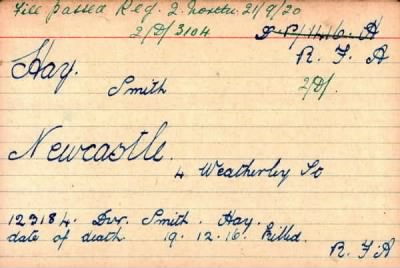 File passed Reg. 2 Section 21/9/20
2/D/3104
R. F. A
Hay.
2/D/.
Smith
Newcastle.
4 Weatherley So
123184. Dvr. Smith. Hay.
date of death 19. 12. 16. Killed.
R. F. A